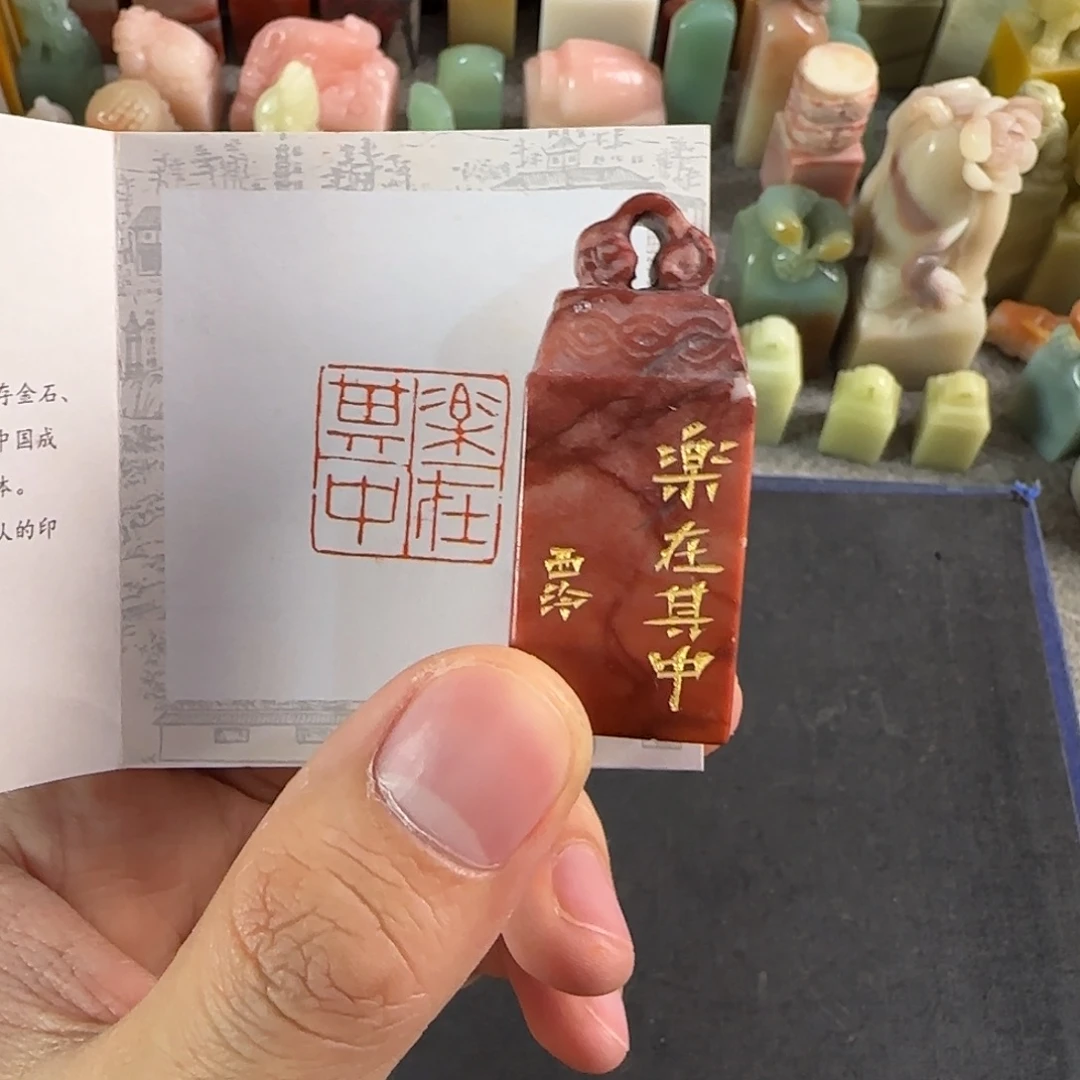 存金石、
中国成
体。
人的印
楽在
其中
楽在其中
西泠